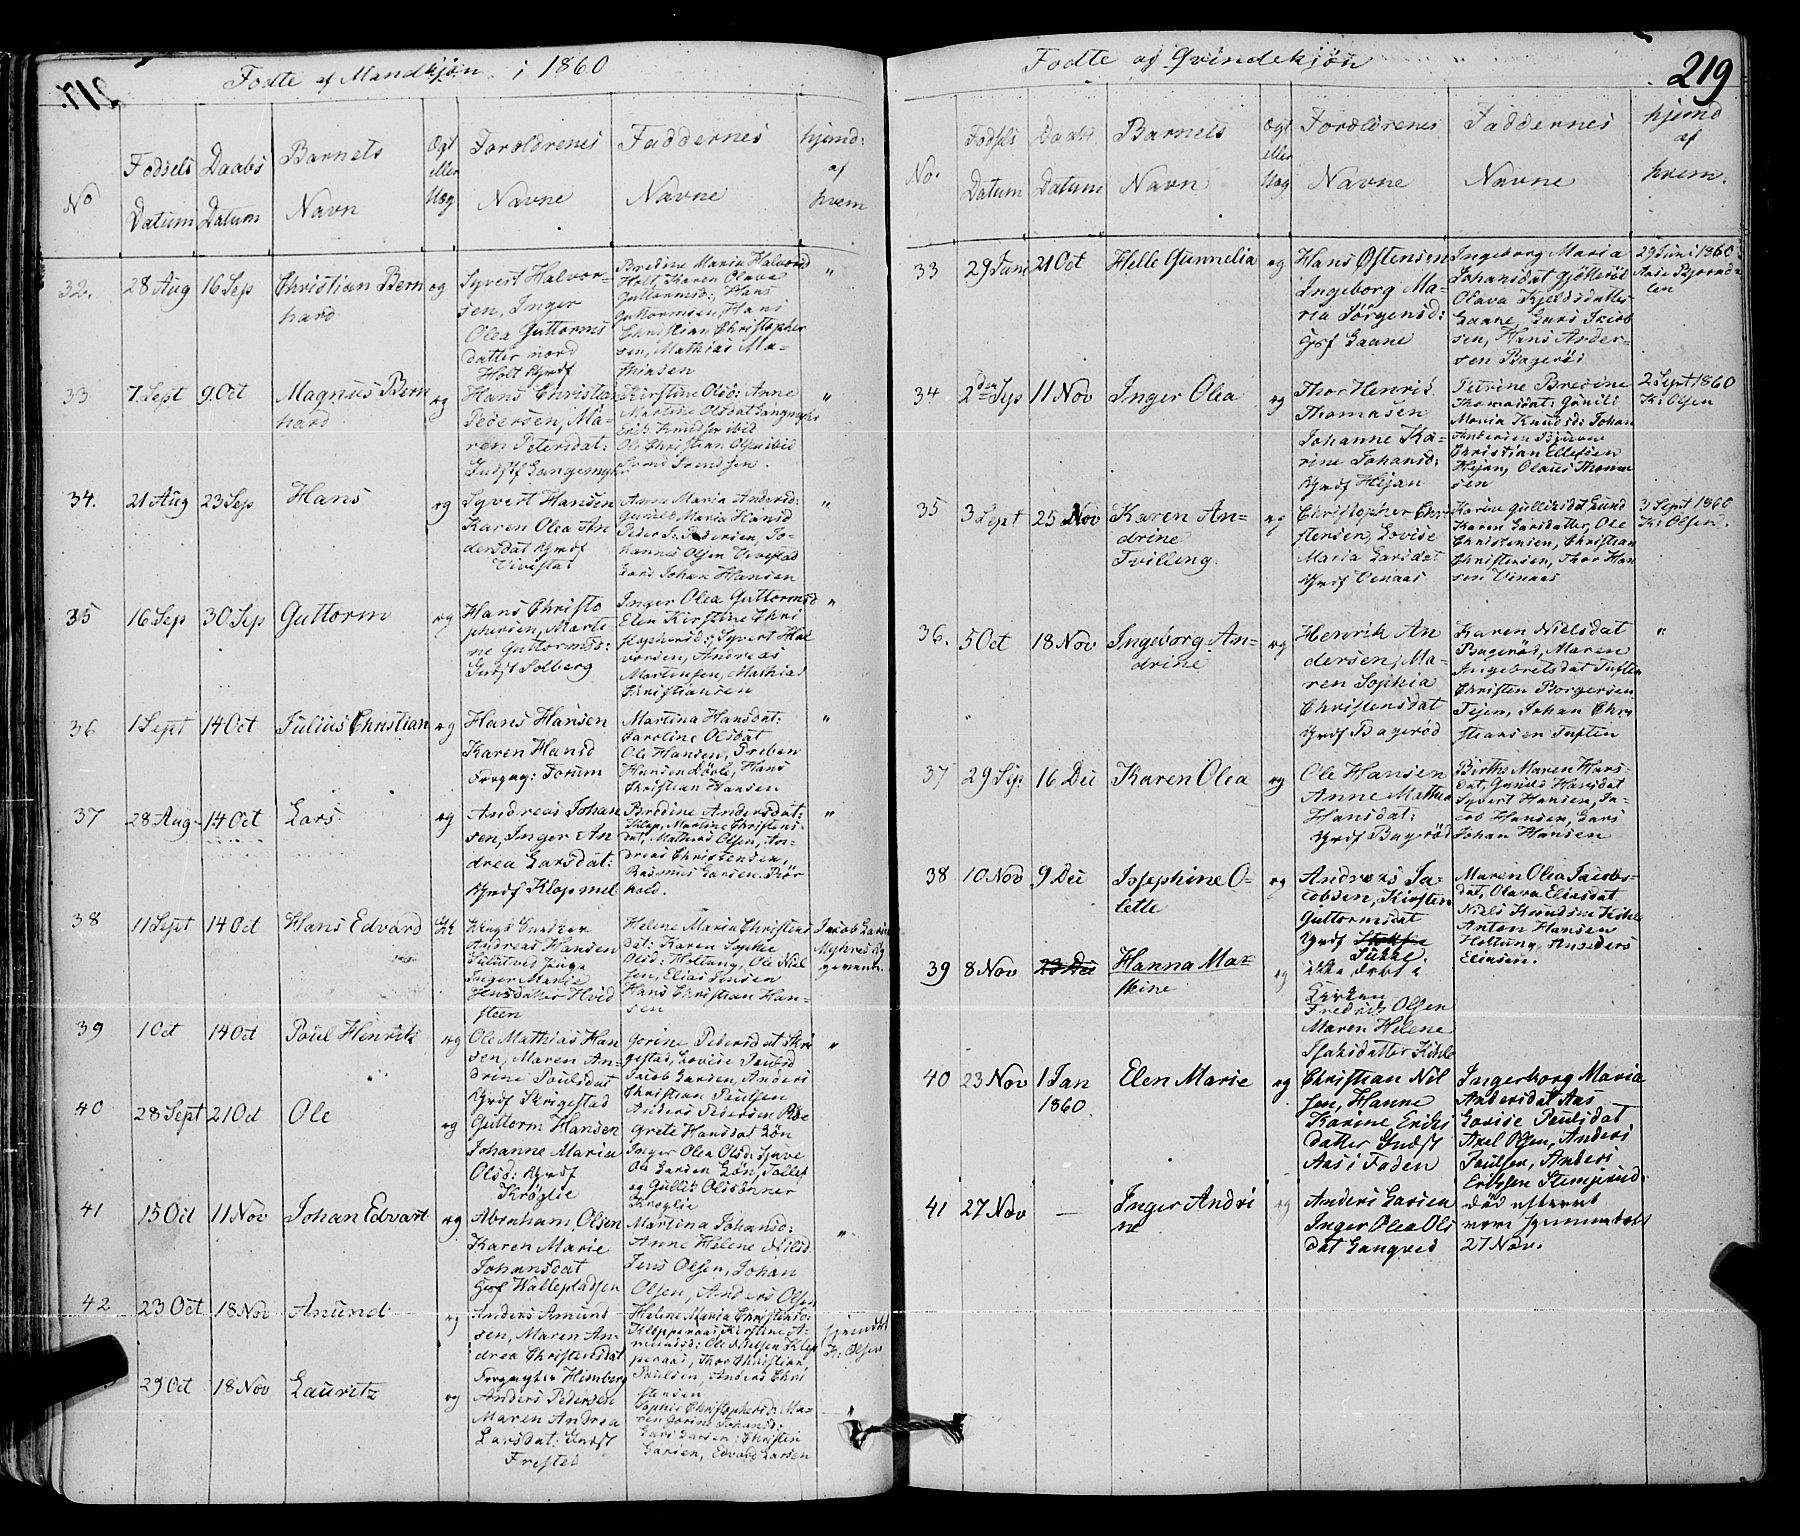 217.
Fodte af Mandkjøn i 1860
No
Fodsels Datum
Daabs Datum
Barnets Navn
Ægt eller Uæg
Foroldrenes Navne
Faddernes Navne
hjemd: af hvem
32.
28 Aug
16 Sep
Christian Bern
hard
æg
Syvert Halvor-
sen, Inger
Olea Guttorms
datter nord
Holt Grdf
Bredine Maria Halvorsd
Holt, Karen Olava
Guttormsd:, Hans
Guttormsen, Hans
Christian Christopher
sen, Mathias Ma-
thiasen
"
33
7. Sept
9. Oct
Magnus Bern
hard
æg
Hans Christian
Pedersen, Ma-
ren Petersdat:
Kirstine Olsd: Anne
Ole Christian Olsen ibid
"
34.
21 Aug
23 Sep
Hans
æg
Syvert Hansen
Karen Olea An
dersdat Grdf
Vivestad
Anne Maria Andersd:
Gunild Maria Hansd
Peder S: Pedersen, Jo-
hannes Olsen Vivestad
Lars Johan Hansen
"
35
16 Sep
30 Sep
Guttorm
æg
Hans Christo
phersen, Marti
ne Guttormsd:
Solberg
Inger Olea Guttormsd
Elen Kirstine Chri
stophersd:, Syvert Hal
vorsen, Andreas
Martinsen, Mathias
Christiansen
"
36
1 Sept
14 Oct
Julius Christian
æg
Hans Hansen
Karen Hansd
Torum
Martina Hansdat:
Caroline Olsdat
Ole Hansen, Preben
Hansen, Hans
Christian Hansen
"
37
28 Aug
14 Oct
Lars
æg
Andreas Johan
sen, Inger An
drea Larsdat:
Grdf Klopmel
Bredine Andersdat:
Klop, Martine Christens
dat, Mathias Olsen, An-
dreas Christensen,
Rasmus Larsen
"
38
11 Sept
14 Oct
Hans Edvard
Andreas Hansen
Inger Marie
Jensdatter Hvid
steen
Helene Maria Christens
dat: Karen Sophie
Olsd: Holtung, Ole Niel
sen, Elias Jensen
Hans Christian Han-
sen
39
1 Oct
14 Oct
Poul Henrik
æg
Ole Mathias Han
sen, Maren An-
drine Poulsdat
Grdf Skrigestad
Gorine Pedersdat Skri
gestad, Lovise Paulsd
Jacob Larsen, Anders
Christian Paulsen
Anders Pedersen
"
40
28 Sept
21 Oct
Ole
æg
Guttorm Hansen
Johanne Maria
Olsd: Grdf
Krøglie
Grete Hansdat Løn
Inger Olea Olsd:
Ole Larsen Løn, Tollef
og Gullik Olssønner
Kroglie
41
15 Oct
11 Nov
Johan Edvart
æg
Abraham Olsen
Karen Marie
Johansdat
Wallepladsen
Martina Johansd:
Anne Helene Nilsd
Jens Olsen, Johan
Olsen, Anders Olsen
"
42
23 Oct
18 Nov
Amund
æg
Anders Amund
sen, Maren An-
drea Christensdat
Himberg
Helene Maria Christensd:
Kloppe­raas, Kirstine A-
mundsd: Ole Nielsen Klop
peraas, Thor Christian
Paulsen, Anders Chri
stensen
hjemdøbt
K: Olsen
29 Oct
18 Nov
Lauritz
æg
Anders Pedersen
Maren Andrea
Larsdat:
Frested
Sophie Christophersd: Ma-
ren Gorine Johansd:
Lars Larsen, Christen
Larsen, Edvard Larsen
"
Fodte af Qvindekjøn
219
No.
Fodsels Datum
Daabs Datum
Barnets Navn
Ægt eller Uæg
Foroldrenes Navne
Faddernes Navne
hjemd af hvem.
33
29 Juni
21 Oct
Helle Gunnelia
æg
Hans Østensen
Ingeborg Ma-
ria Jørgensd:
Gaane
Ingeborg Maria
Johansdat
Olava Kjeldsdatter
Gaane, Lars Jacob
sen, Hans Ander-
sen Bagerød
29 Juni 1860
34
2den Sep
11 Nov
Inger Olea
æg
Thor Henrik
Thomasen
Johanne Ka-
rine Johansd:
Grdf Hejan
Petrine Bredine
Thomasdat: Gunild
Maria Knudsd: Johan
Andersen
Christian Ellefsen
Hejan, Olaus Thomas
sen
2 Sept 1860
K: Olsen
35
3 Sept
25 Nov
Karen An-
drine
Tvilling.
æg
Christopher Chri
stensen, Lovise
Maria Larsdat:
Grdf Vinaas
Karine Gulliksdat Lund
Karen Larsdatter, Ole
Christensen, Christian
Christensen, Thor Han
sen Vinaas
3 Sept 1860
K: Olsen.
"
36.
5 Oct
18 Nov
Ingeborg An-
drine
æg
Henrik An
dersen, Ma-
ren Sophia
Christensdat
Grdf Bagerød
Karen Nielsdat
Bagerød, Maren
Ingebretsdat Tuften
Christen Borgersen
Johan Chri
stiansen Tuften
"
37
29 Sep.
16 Dec
Karen Olea
æg
Ole Hansen
Anne Mathea
Hansdat:
Grdf Bagerød
Birthe Maren Hans-
dat, Gunild Hansdat
Syvert Hansen, Ja-
cob Hansen, Lars
Johan Hansen
38
10 Nov
9 Dec
Josephine O-
lette
æg
Andreas Ja-
cobsen, Kirsten
Guttormsdat
Grdf
Maren Olea Jacobs-
dat, Olava Eliasdat
Niels Knudsen
Anton Hansen
Holtung, Anders
Eliasen.
39
8 Nov
23 Dec
Hanna Mar-
thine
æg
ikke døbt i
Kirken
Fredrik Olsen
Maren Helene
Isaksdatter
40
23 Nov
1 Jan
1860.
Elen Marie
æg
Christian Nil
sen, Hanne
Karine Eriks
datter
Aas i Faden
Ingerborg Maria
Andersdat Aas
Lovise Paulsdat
Axel Olsen, Anders
Paulsen, Anders
Eriksen
41
27 Nov
—
Inger Andri
ne
æg
Anders Larsen
Inger Olea Ols
dat Langved
død efterat
være hjemmedøbt
27 Nov.